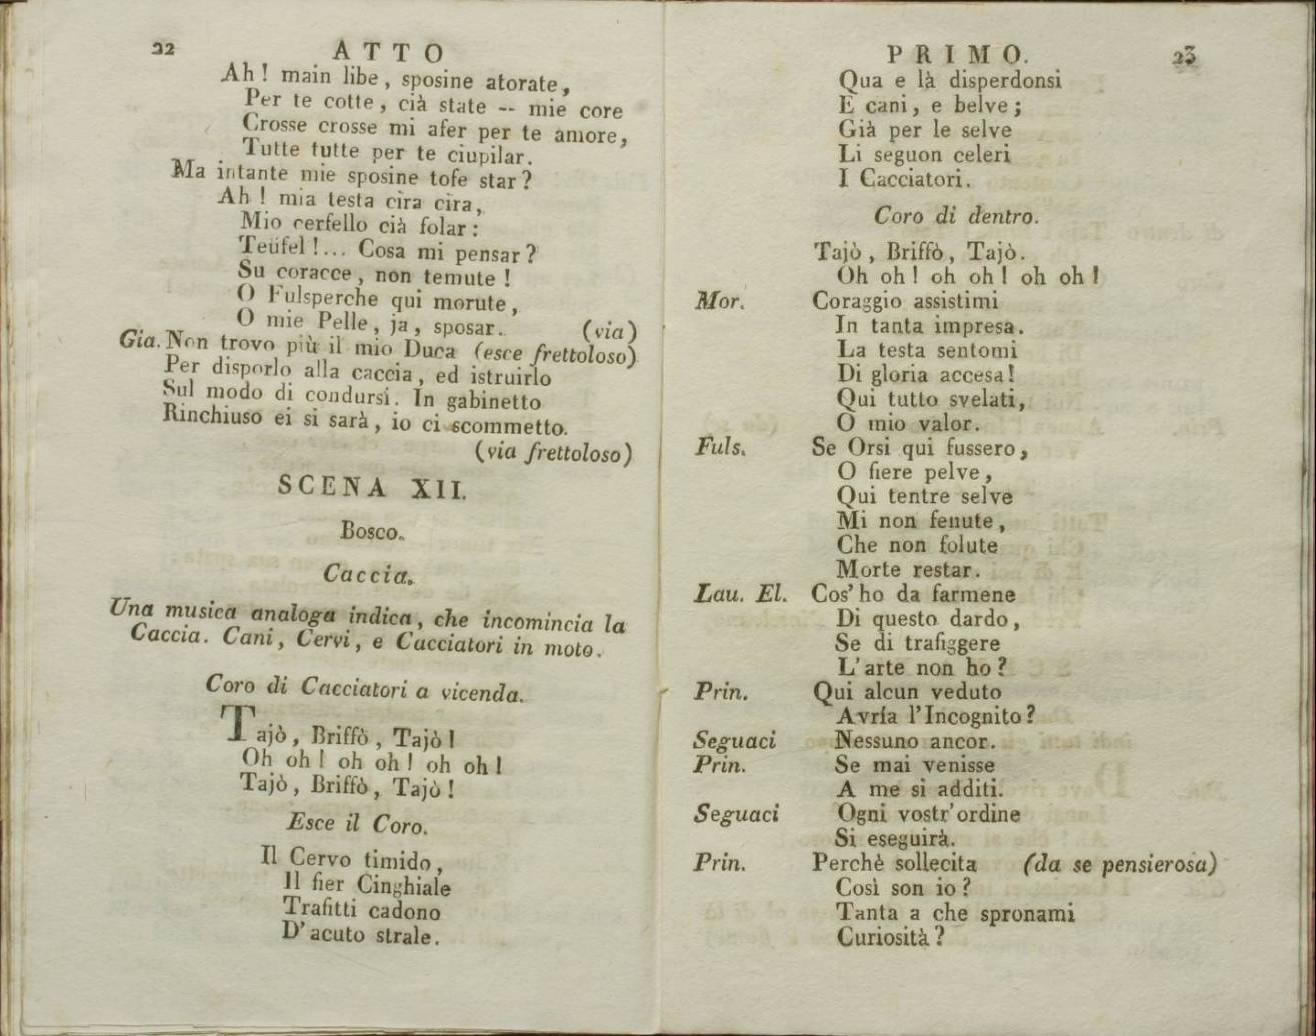 22 ATTO
Ah! main libe, sposine atorate,
Per te cotte, cià state -- mie core
Crosse crosse mi afer per te amore,
Tutte tutte per te ciupilar.
Ma intante mie sposine tofe star?
Ah! mia testa cira cira,
Mio cerfello cià folar:
Teüfel!... Cosa mi pensar?
Su coracce, non temute!
O Fulsperche qui morute,
O mie Pelle, ja, sposar. (via)
Gia. Non trovo più il mio Duca (esce frettoloso)
Per disporlo alla caccia, ed istruirlo
Sul modo di condursi. In gabinetto
Rinchiuso ei si sarà, io ci scommetto.
(via frettoloso)
SCENA XII.
Bosco.
Caccia.
Una musica analoga indica, che incomincia la
Caccia. Cani, Cervi, e Cacciatori in moto.
Coro di Cacciatori a vicenda.
Tajò, Briffò, Tajò!
Oh oh! oh oh! oh oh!
Tajò, Briffò, Tajò!
Esce il Coro.
Il Cervo timido,
Il fier Cinghiale
Trafitti cadono
D'acuto strale.
PRIMO. 23
Qua e là disperdonsi
E cani, e belve;
Già per le selve
Li seguon celeri
I Cacciatori.
Coro di dentro.
Tajò, Briffò, Tajò.
Oh oh! oh oh! oh oh!
Mor. Coraggio assistimi
In tanta impresa.
La testa sentomi
Di gloria accesa!
Qui tutto svelati,
O mio valor.
Fuls. Se Orsi qui fussero,
O fiere pelve,
Qui tentre selve
Mi non fenute,
Che non folute
Morte restar.
Lau. El. Cos' ho da farmene
Di questo dardo,
Se di trafiggere
L'arte non ho?
Prin. Qui alcun veduto
Avría l'Incognito?
Seguaci Nessuno ancor.
Prin. Se mai venisse
A me si additi.
Seguaci Ogni vostr'ordine
Si eseguirà.
Prin. Perchè sollecita (da se pensierosa)
Così son io?
Tanta a che spronami
Curiosità?